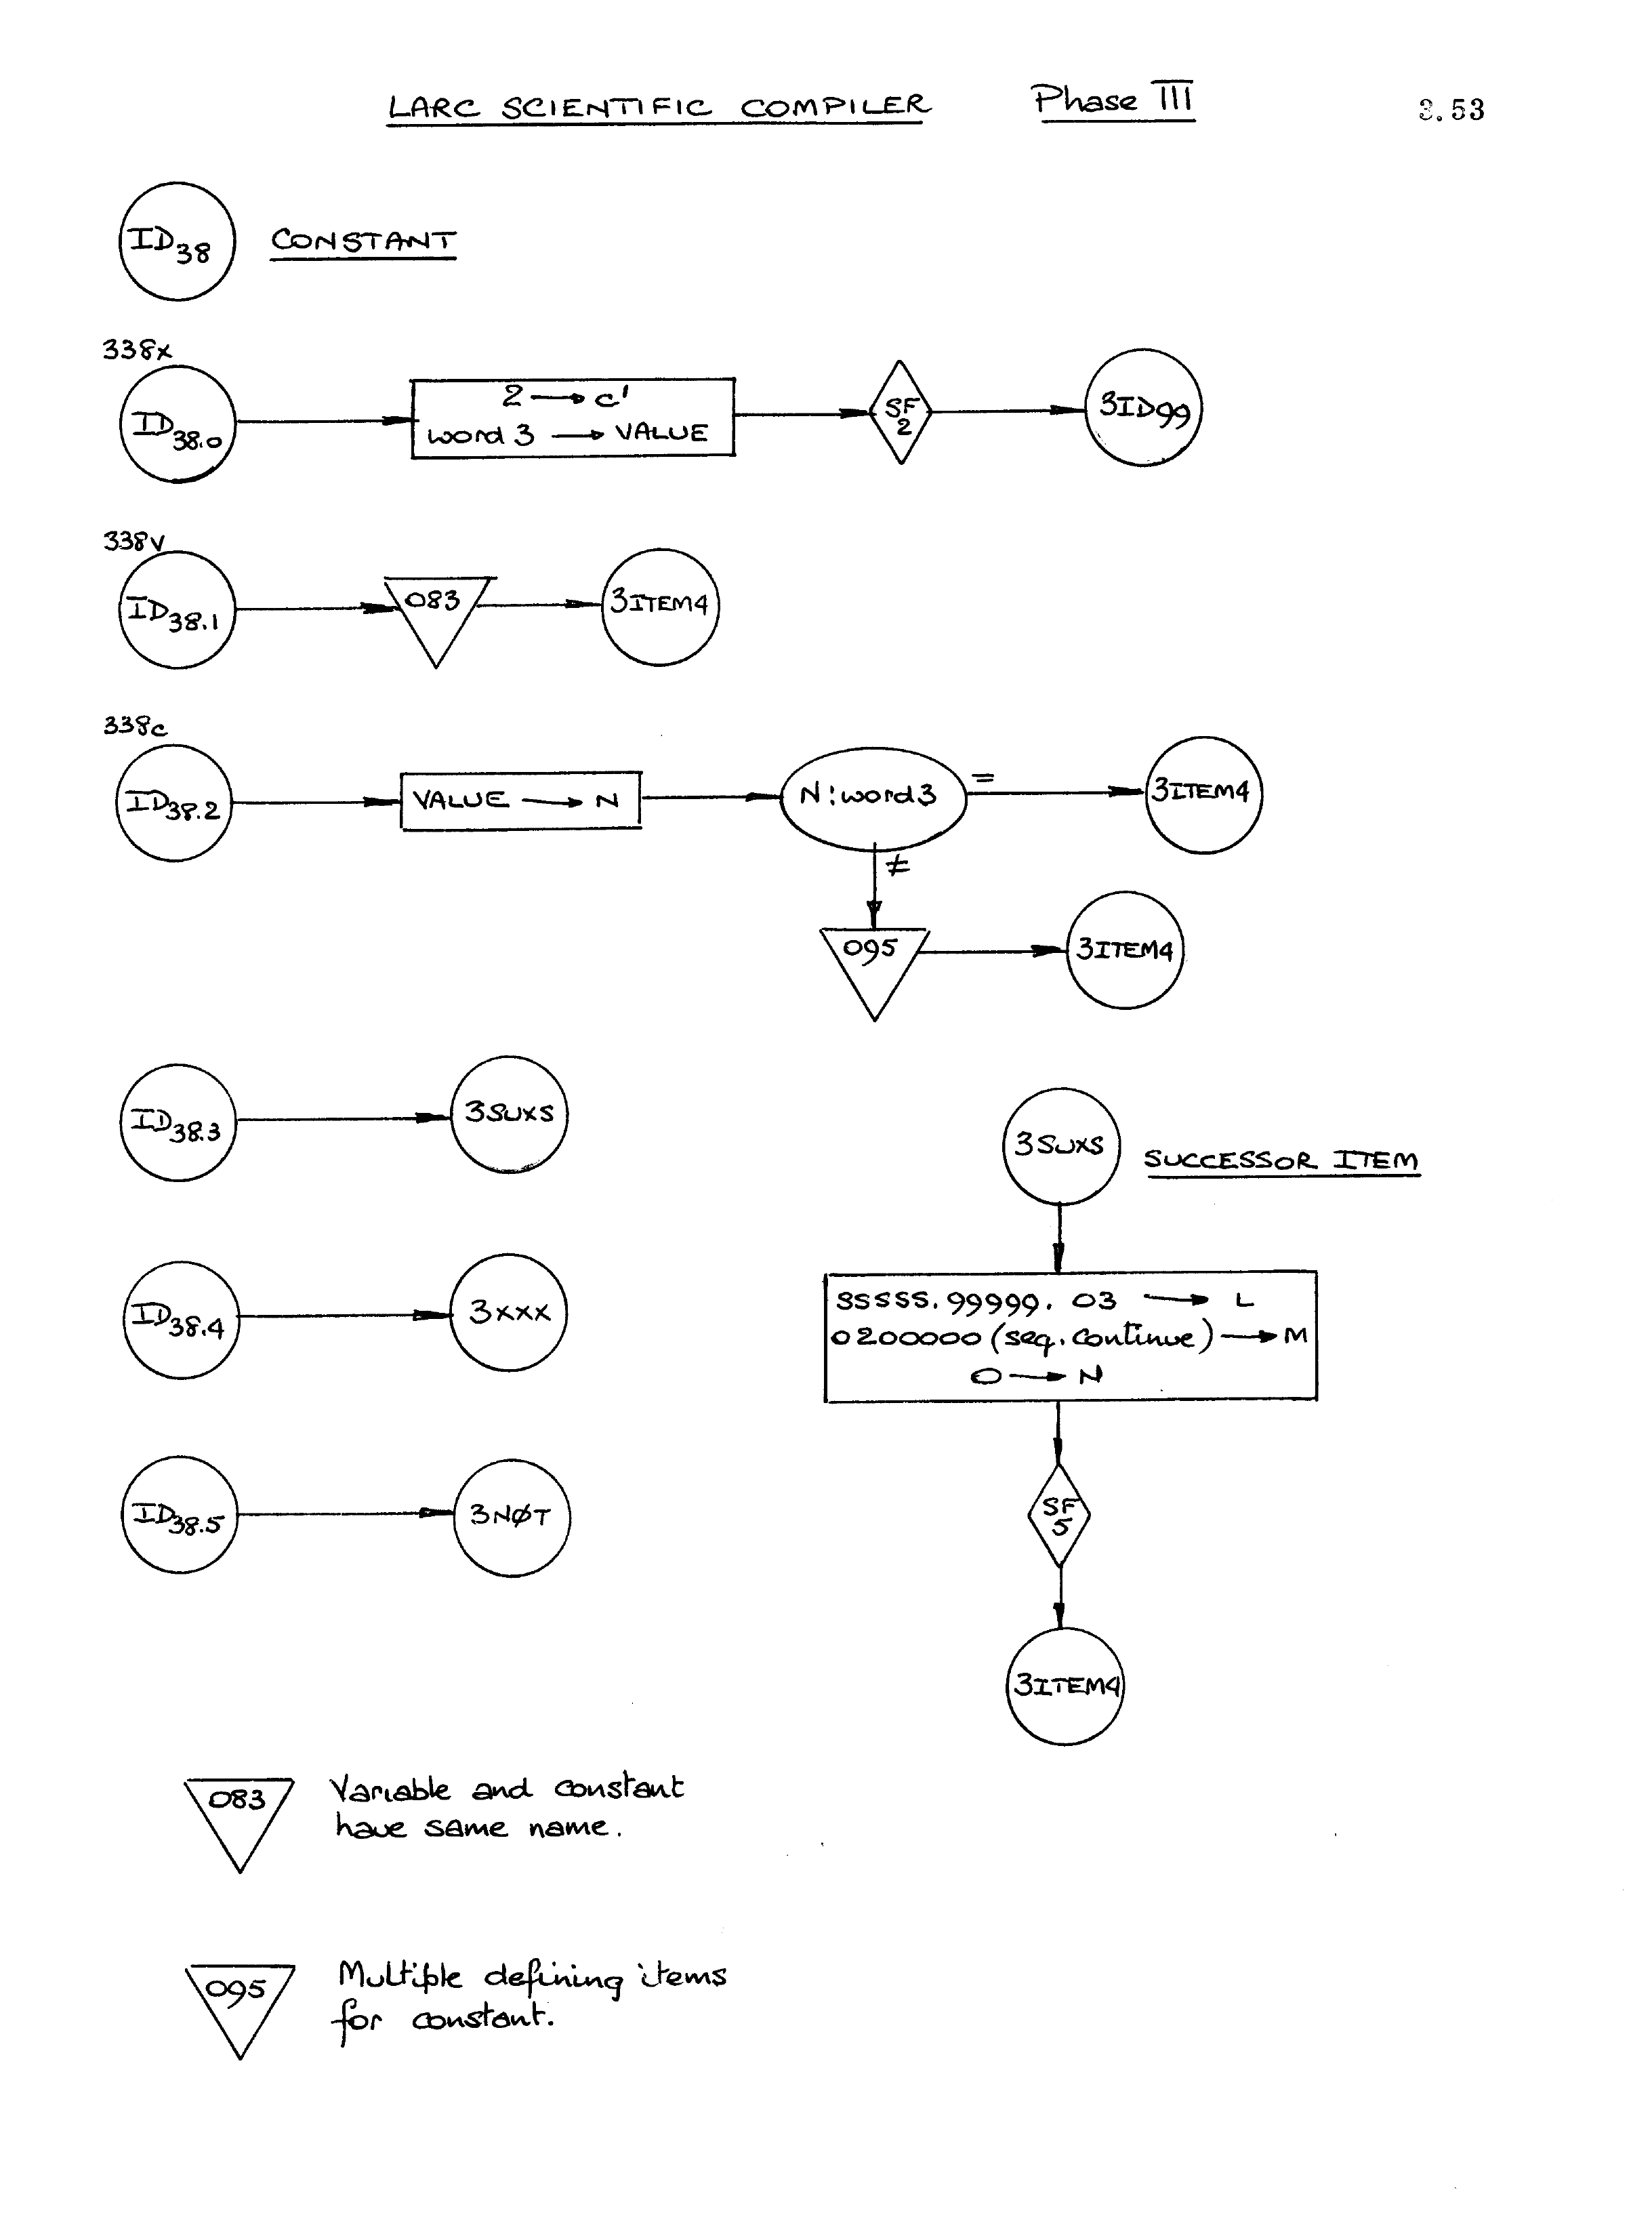 LARC SCIENTIFIC COMPILER Phase III 3.53
ID38 CONSTANT
338x
ID38.0
2 → c'
word 3 → VALUE
SF
2
3ID99
338v
ID38.1
083
3ITEM4
338c
ID38.2
VALUE → N
N:word3
=
3ITEM4
≠
095
3ITEM4
ID38.3
3SUXS
ID38.4
3XXX
ID38.5
3NØT
3SUXS
SUCCESSOR ITEM
SSSSS.99999. 03 → L
0200000 (seq. continue) → M
0 → N
SF
5
3ITEM4
083
Variable and constant
have same name.
095
Multiple defining items
for constant.